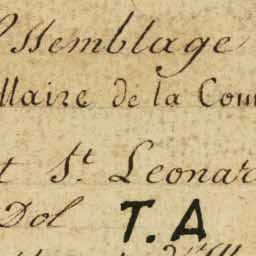 ssemblage
llaire de la Com
t St. Leonar
Dol T.A